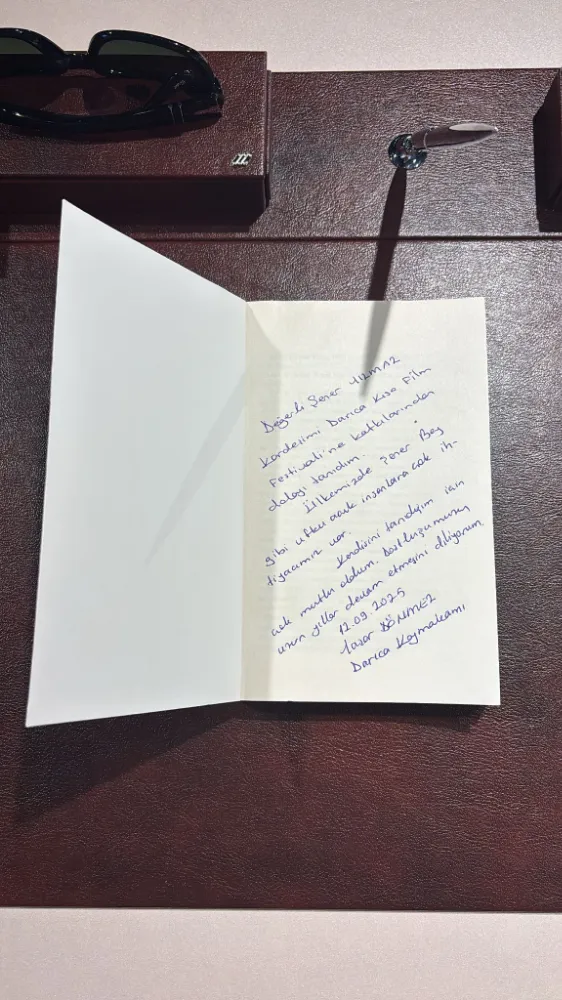 Değerli Şener YILMAZ
kardeşimi Darıca Kısa Film
Festivali'ne katkılarından
dolayı tanıdım.
Ülkemizde Şener Bey
gibi ufku açık insanlara çok ih-
tiyacımız var.
Kendisini tanıdığım için
çok mutlu oldum. Dostluğumuzun
uzun yıllar devam etmesini diliyorum.
12.09.2025
Yaşar DÖNMEZ
Darıca Kaymakamı